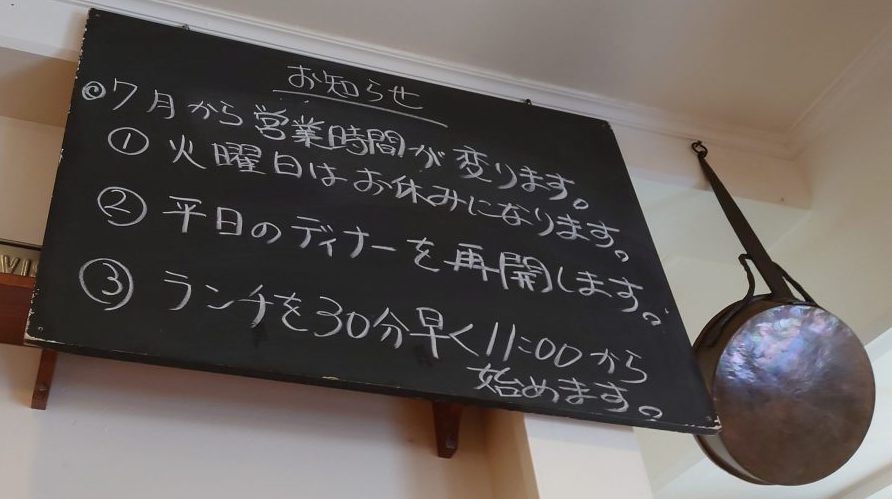 お知らせ
◎7月から営業時間が変ります。
① 火曜日はお休みになります。
② 平日のディナーを再開します。
③ ランチを30分早く11:00から
始めます。